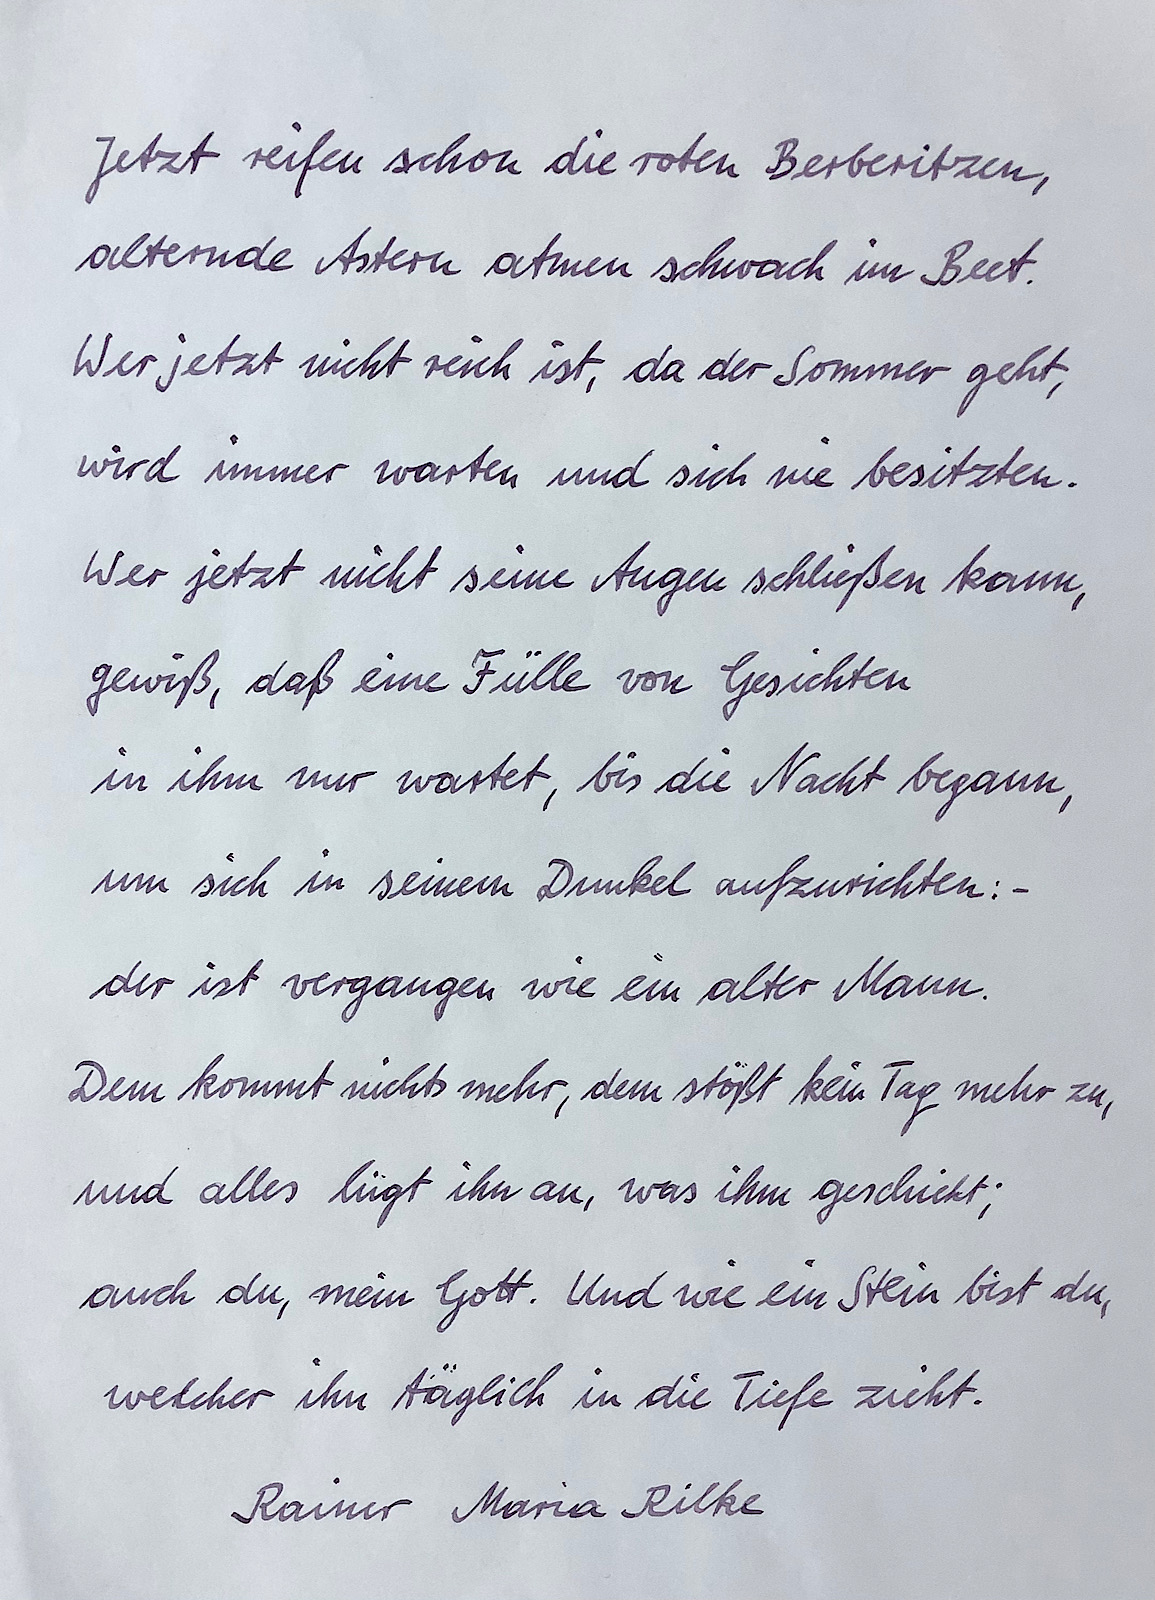 Jetzt reifen schon die roten Berberitzen,
alternde Astern atmen schwach im Beet.
Wer jetzt nicht reich ist, da der Sommer geht,
wird immer warten und sich nie besitzten.
Wer jetzt nicht seine Augen schließen kann,
gewiß, daß eine Fülle von Gesichten
in ihm nur wartet, bis die Nacht begann,
um sich in seinem Dunkel aufzurichten:-
der ist vergangen wie ein alter Mann.
Dem kommt nichts mehr, dem stößt kein Tag mehr zu,
und alles lügt ihn an, was ihm geschieht;
auch du, mein Gott. Und wie ein Stein bist du,
welcher ihn täglich in die Tiefe zieht.
Rainer Maria Rilke